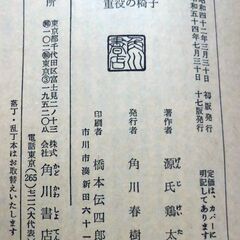 重役の椅子
昭和四十二年三月三十日 初版発行
昭和五十四年七月三十日 十七版発行
定価は、カバーに
明記してあります
著作者 源氏鶏太
発行者 角川春樹
印刷者 橋本伝四郎
市川市湊新田六十一
所
株式会社 角川書店
東京都千代田区富士見二ー十三
〒一〇二 振替東京③一九五二〇八
電話東京(265)七一一一大代表
落丁・乱丁本はお取替えいたします